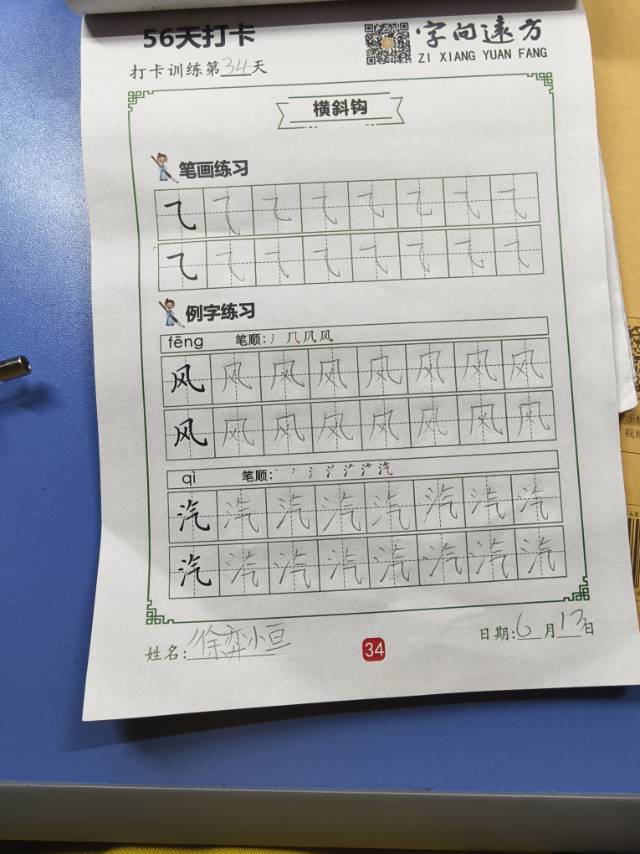 56天打卡
字向远方
ZI XIANG YUAN FANG
打卡训练第34天
横斜钩
笔画练习
⺄ ⺄ ⺄ ⺄ ⺄ ⺄ ⺄ ⺄
⺄ ⺄ ⺄ ⺄ ⺄ ⺄ ⺄ ⺄
例字练习
fēng 笔顺:丿几凡风
风 风 风 风 风 风 风 风
风 风 风 风 风 风 风 风
qì 笔顺:
汽 汽 汽 汽 汽 汽 汽 汽
汽 汽 汽 汽 汽 汽 汽 汽
姓名:徐弈小亘
34
日期:6月13日